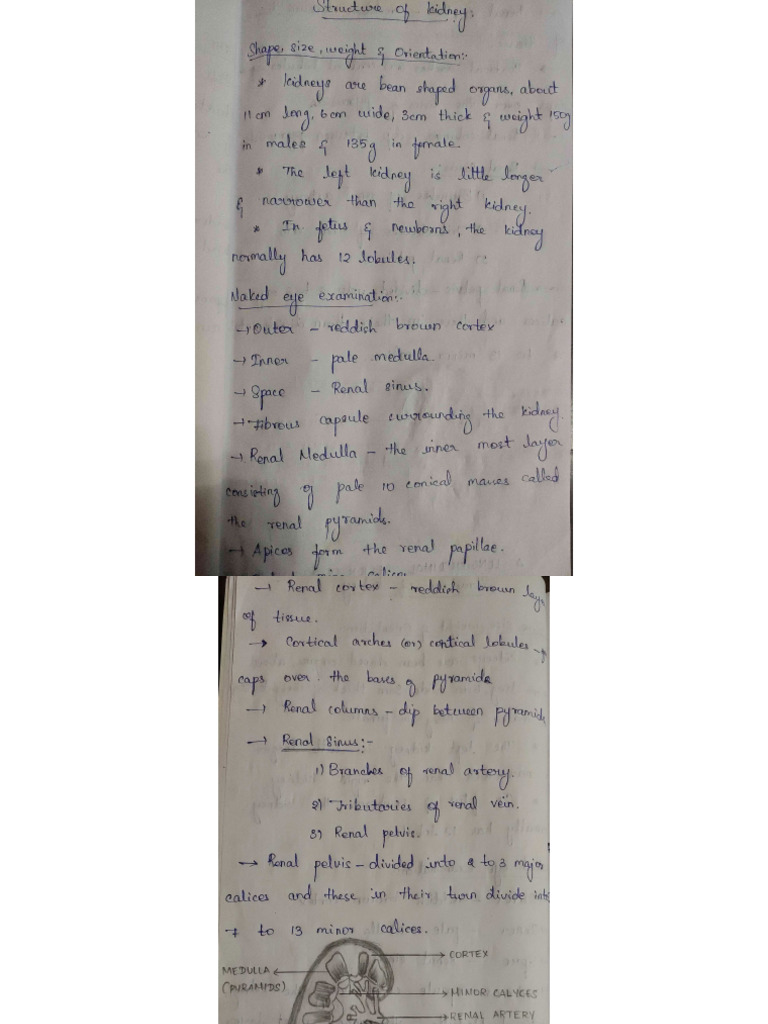 Structure of kidney:
Shape, size, weight & Orientation:-
* kidneys are bean shaped organs, about
11cm long, 6cm wide, 3cm thick & weight 150g
in males & 135g in female.
* The left kidney is little longer
& narrower than the right kidney.
* In fetus & newborns, the kidney
normally has 12 lobules.
Naked eye examination:-
→ Outer - reddish brown cortex
→ Inner - pale medulla.
→ Space - Renal sinus.
→ Fibrous capsule surrounding the kidney.
→ Renal Medulla - the inner most layer
consisting of pale 10 conical masses called
the renal pyramids.
→ Apices form the renal papillae.
→ Renal cortex - reddish brown laye
of tissue.
→ Cortical arches (or) cortical lobules →
caps over the bases of pyramids
→ Renal columns - dip between pyramids
→ Renal Sinus:-
1) Branches of renal artery.
2) Tributaries of renal vein.
3) Renal pelvis.
→ Renal pelvis - divided into 2 to 3 major
calices and these in their turn divide into
7 to 13 minor calices.
CORTEX
MEDULLA
(PYRAMIDS)
MINOR CALYCES
RENAL ARTERY